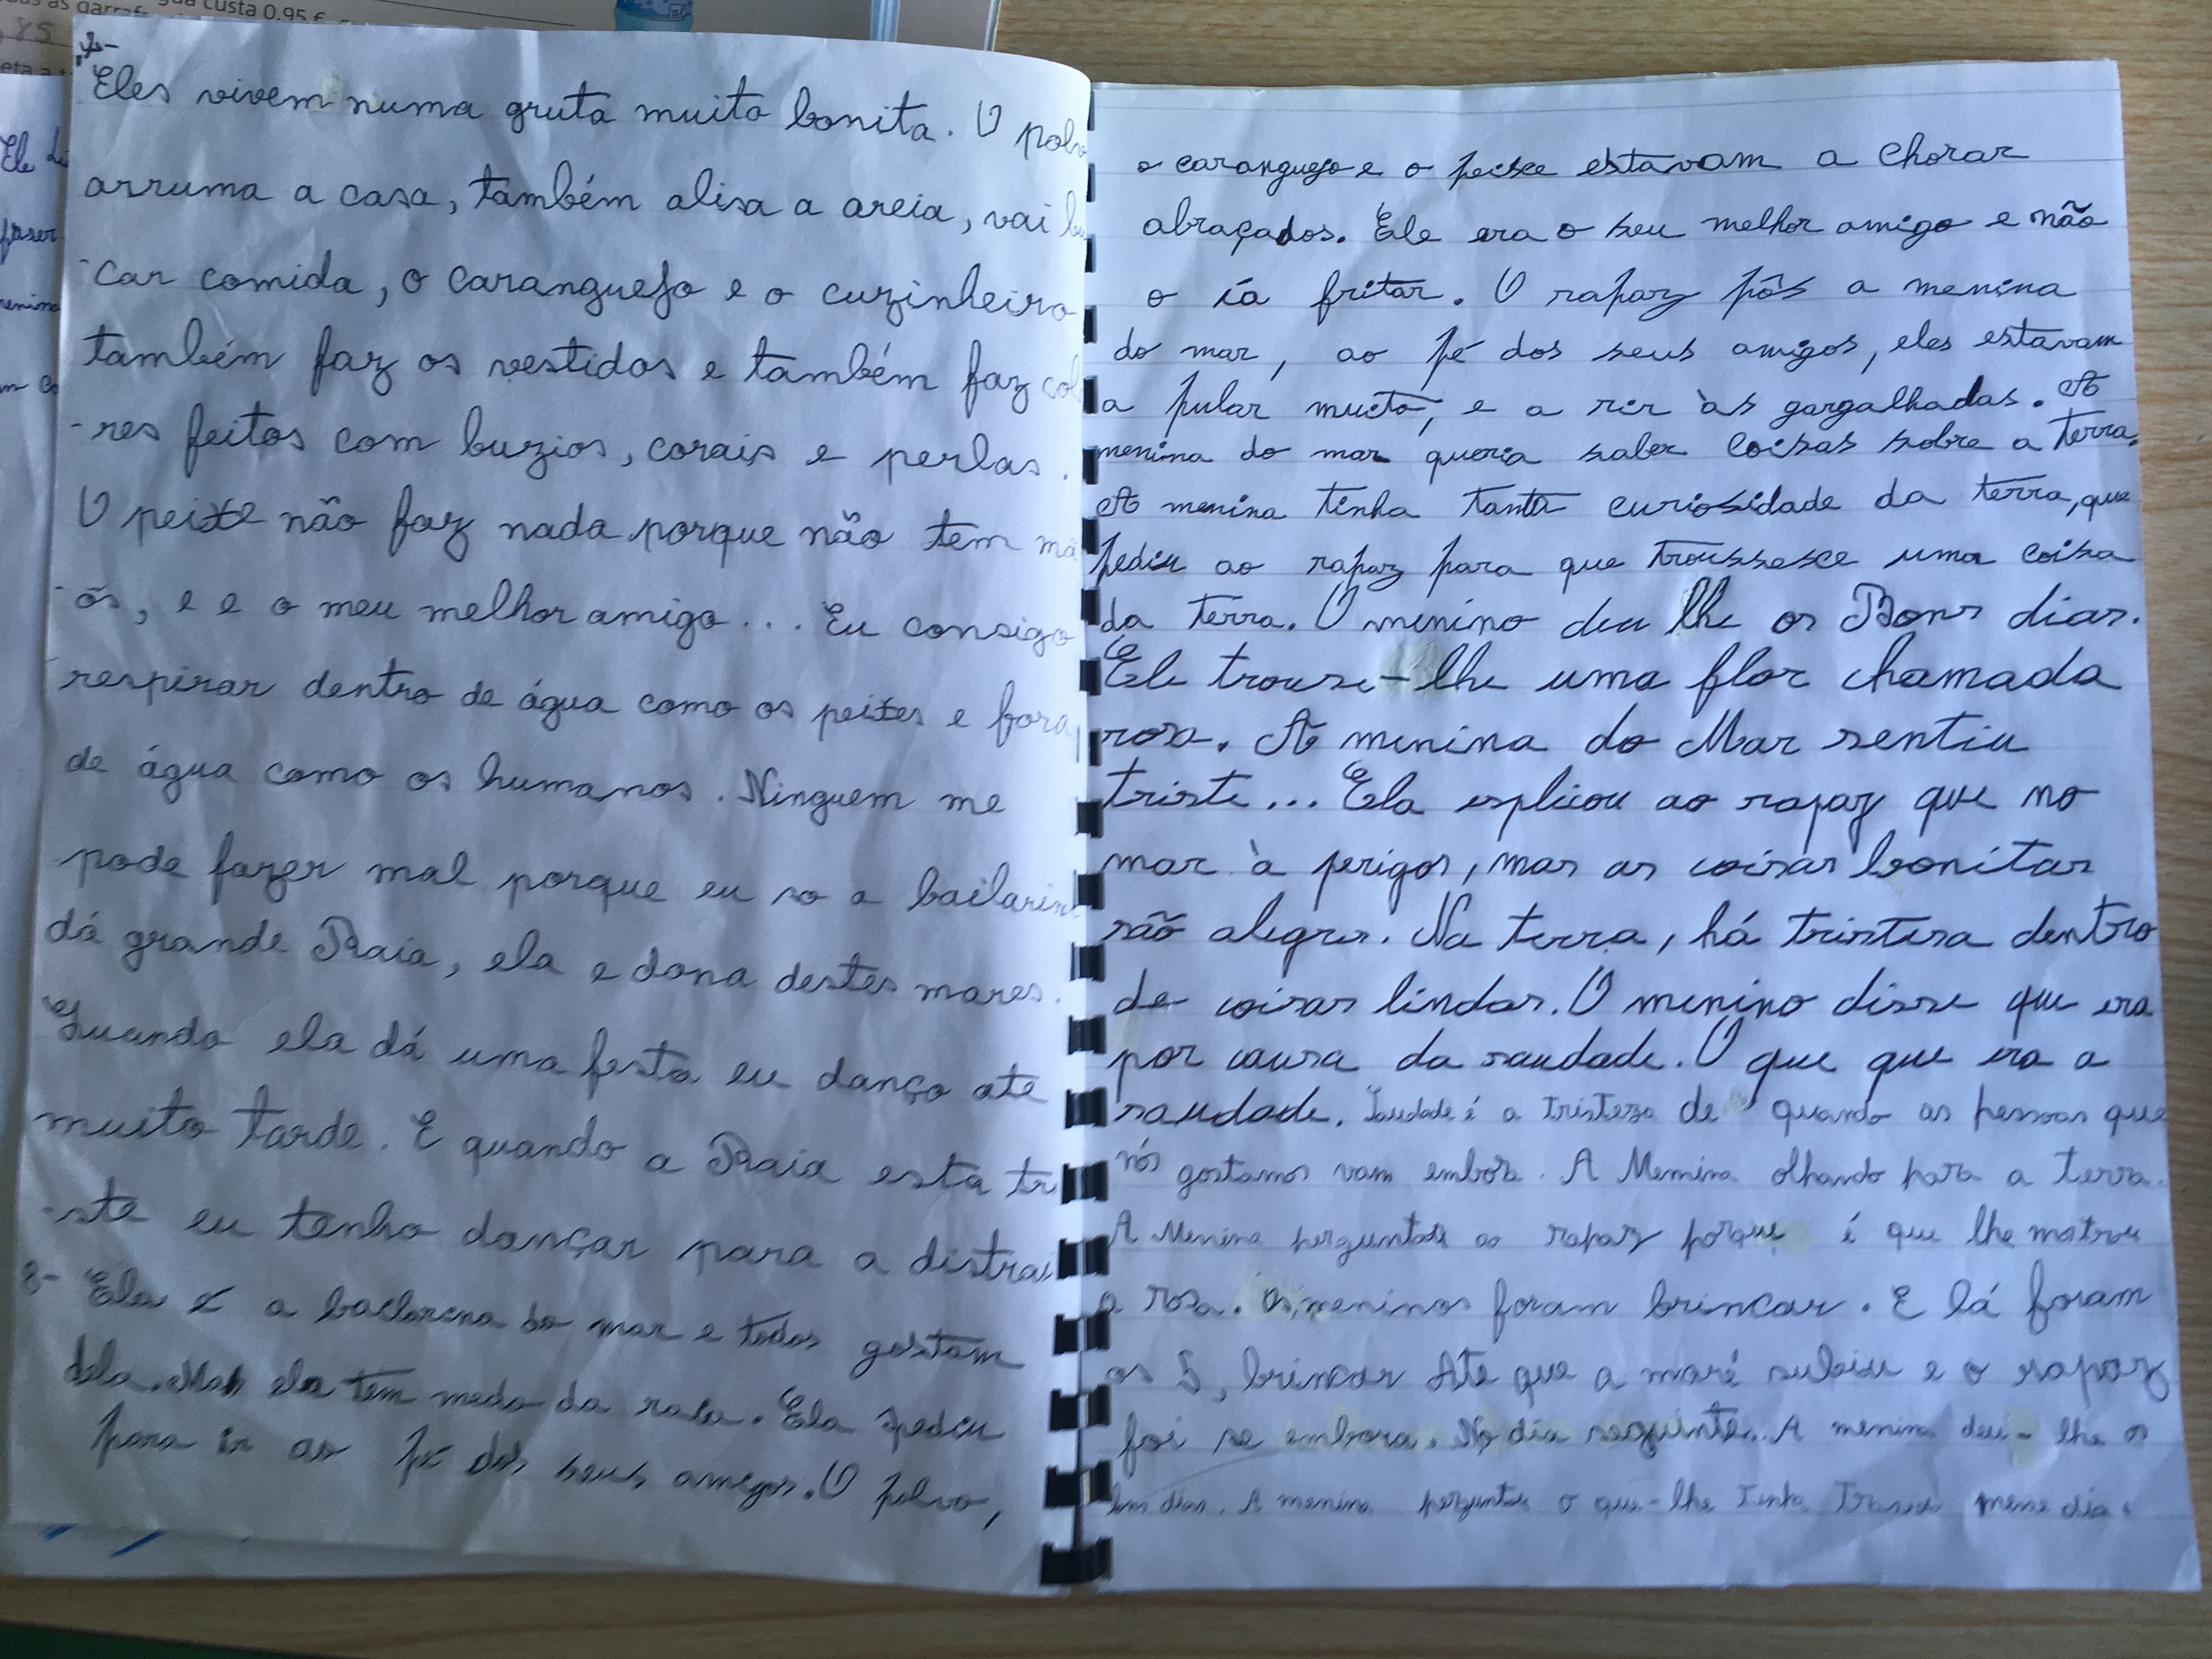 custa 0,95 €
Eles vivem numa gruta muito bonita. O polvo
arruma a casa, também alisa a areia, vai
car comida, o caranguejo e o cuzinheiro
também faz os vestidos e também faz col
-res feitos com buzios, corais e perlas.
O peixe não faz nada porque não tem mã
-os, e e o meu melhor amigo... Eu consigo
respirar dentro de água como os peixes e fora
de água como os humanos. Ninguem me
pode fazer mal porque eu so a bailarina
dá grande Raia, ela e dona destes mares.
Quando ela dá uma festa eu danço ate
muito tarde. E quando a Raia esta tri
-ste eu tenho dançar para a distrai
8- Ela é a bailarina do mar e todos gostam
dela. Mas ela tem medo da raia. Ela pediu
para ir ao pé dos seus amigos. O polvo,
o caranguejo e o peixe estavam a chorar
abraçados. Ele era o seu melhor amigo e não
o ia fritar. O rapaz pôs a menina
do mar, ao pé dos seus amigos, eles estavam
a pular muito, e a rir às gargalhadas. A
menina do mar queria saber coisas sobre a terra.
A menina tinha tanta curiosidade da terra, que
pediu ao rapaz para que troussesce uma coisa
da terra. O menino deu lhe os Bons dias.
Ele trouse-lhe uma flor chamada
rosa. A menina do Mar sentiu
triste... Ela esplicou ao rapaz que no
mar à perigos, mas as coisas bonitas
são alegres. Na terra, há tristesa dentro
de coisas lindas. O menino disse que era
por causa da saudade. O que que era a
saudade. Saudade é a tristeza de quando as pessoas que
nós gostamos vam embora. A Menina olhando para a terra.
A Menina pergunta ao rapaz porque é que lhe mostrou
a rosa. Os meninos foram brincar. E lá foram
os 5, brincar Até que a maré subiu e o rapaz
foi se embora. No dia seguinte. A menina deu-lhe os
bm dias. A menina perguntou o que-lhe tinha